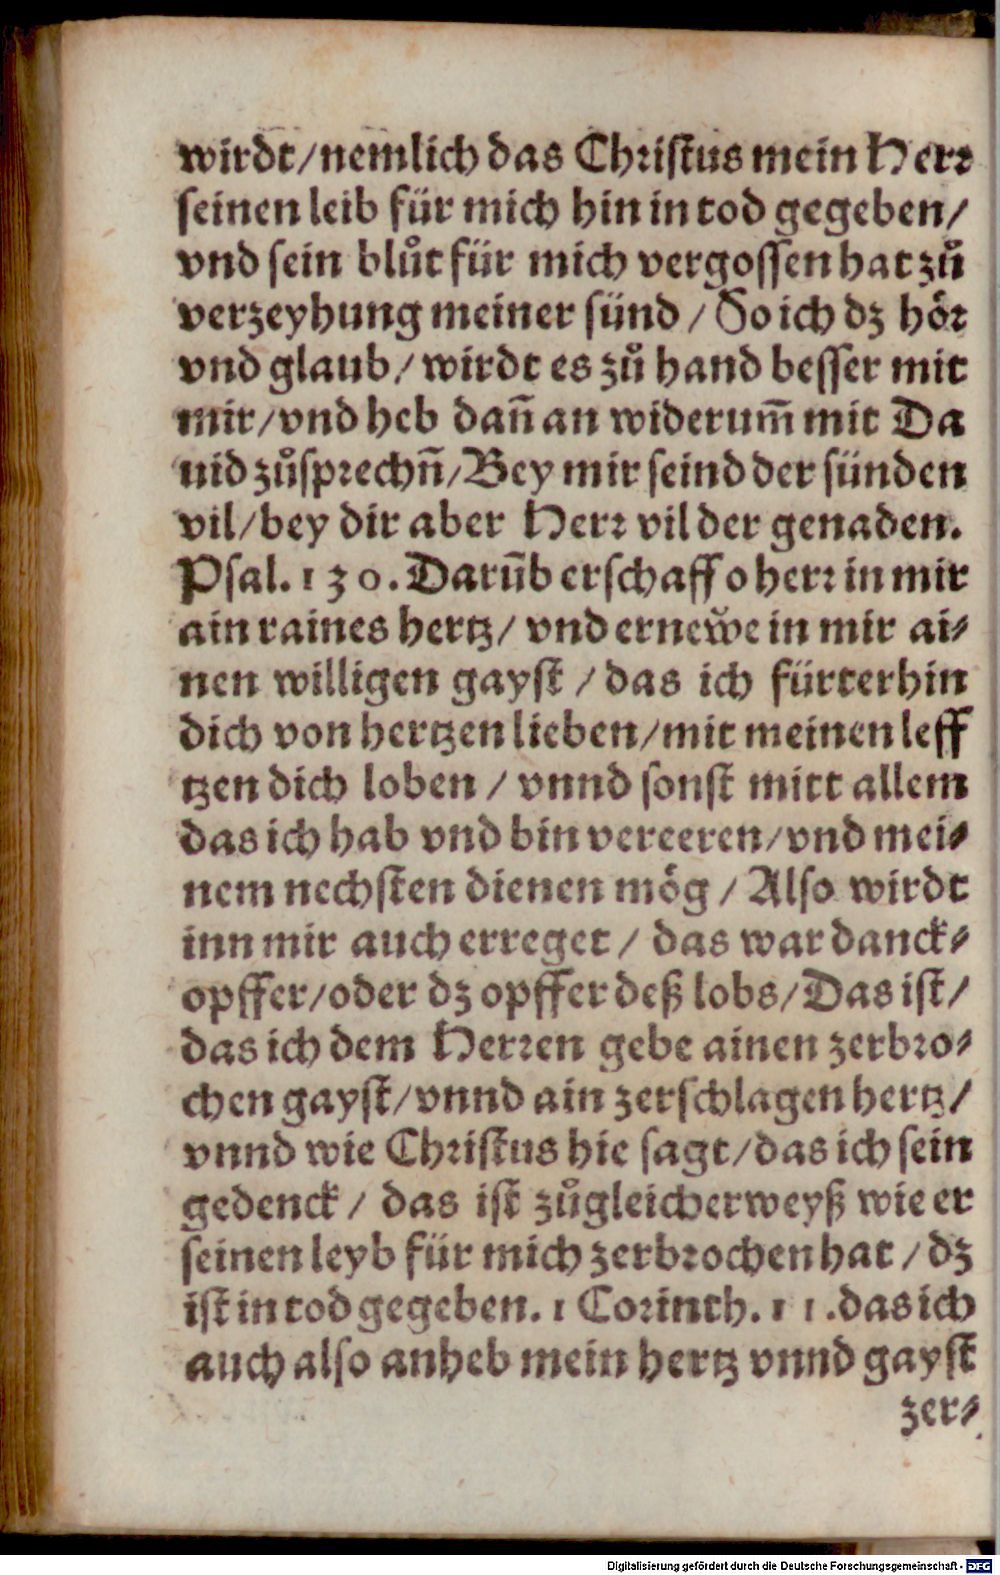 wirdt/nemlich das Christus mein Herr
seinen leib für mich hin in tod gegeben/
vnd sein blůt für mich vergossen hat zů
verzeyhung meiner sünd / So ich dz hör
vnd glaub/ wirdt es zů hand besser mit
mir/vnd heb dañ an widerum̃ mit Da
uid zůsprechñ/Bey mir seind der sünden
vil/bey dir aber Herr vil der genaden.
Psal. 130. Darũb erschaff o herr in mir
ain raines hertz/ vnd ernewe in mir ai⸗
nen willigen gayst / das ich fürterhin
dich von hertzen lieben/mit meinen leff
tzen dich loben / vnnd sonst mitt allem
das ich hab vnd bin vereeren/vnd mei⸗
nem nechsten dienen mög / Also wirdt
inn mir auch erreget / das war danck⸗
opffer/oder dz opffer deß lobs/Das ist/
das ich dem Herren gebe ainen zerbro⸗
chen gayst/vnnd ain zerschlagen hertz/
vnnd wie Christus hie sagt/das ich sein
gedenck / das ist zůgleicherweyß wie er
seinen leyb für mich zerbrochen hat / dz
ist in tod gegeben. 1 Corinth. 11 .das ich
auch also anheb mein hertz vnnd gayst
zer⸗
Digitalisierung gefördert durch die Deutsche Forschungsgemeinschaft - DFG